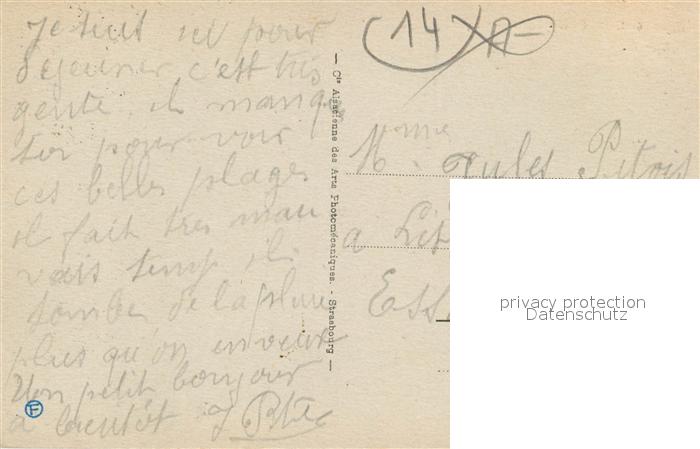 je suis ici pour
déjeuner c'est très
gentil il manque
toi pour voir
ces belles plages
il fait très mau
vais temp il
tombe de la pluie
plus qu'on en veux
Un petit bonjour
a bientôt J
F
— Cie Alsacienne des Arts Photomécaniques. - Strasbourg —
14 A-
Mme Jules Pitois
a
Ess
privacy protection
Datenschutz